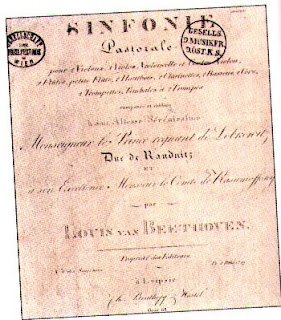 SINFONIE
Pastorale
pour 2 Violons, 2 Violes, Violoncelle et Contre-Violon,
2 Flûtes, petite Flûte, 2 Hautbois, 2 Clarinettes, 2 Bassons, 2 Cors,
2 Trompettes, Timbales et 2 Trompes
composée et dédiée
à son Altesse Sérénissime
Monseigneur le Prince regnant de Lobkowitz
Duc de Raudnitz
ET
à son Excellence Monsieur le Comte de Rasumoffsky
par
LOUIS VAN BEETHOVEN.
Propriété des Editeurs
à Leipsic
Breitkopf & Härtel
GESELLS
D MUSIKFR
WIEN